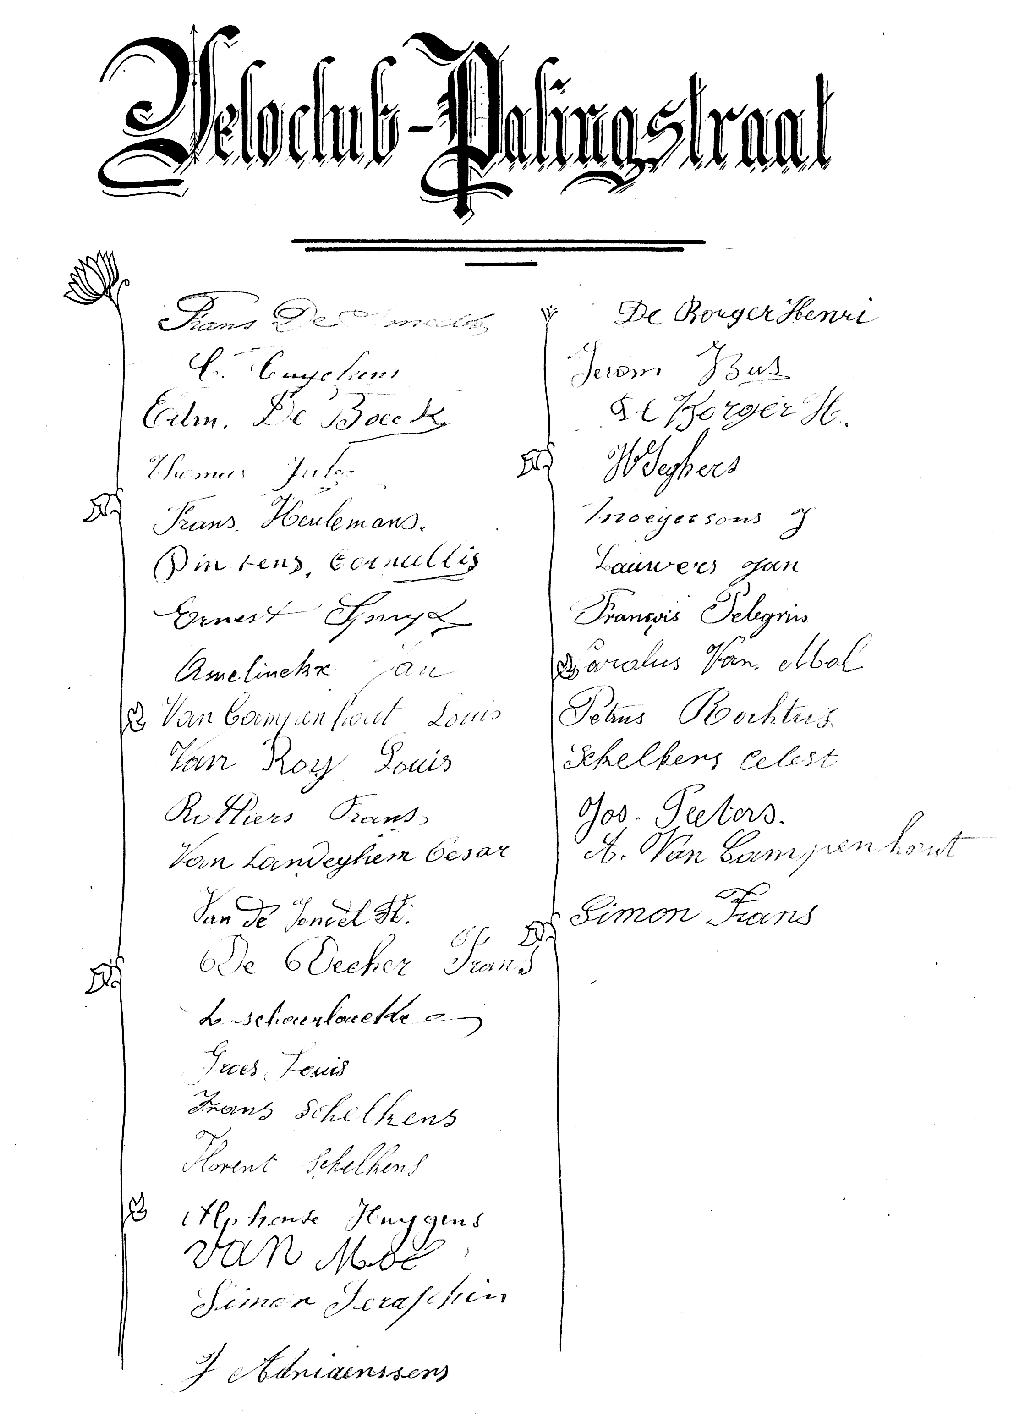 Veloclub-Palingstraat
Frans De
C. Cuyckens
Edm. De Boeck
Thomas Jules
Frans. Heulemans.
Pinkens, Cornellis
Ernest
Amelinckx Jan
Van Campenhout Louis
Van Roy Louis
Ruttiers Frans,
Van Landeghem Cesar
Van de H.
De Decker Frans
L. schaerlaeckx
Louis
Frans Schelkens
Florent Schelkens
Alphonse Huygens
Van Mol
Simon Seraphin
J Adriaenssens
De Borger Henri
Jerom Bus
De Borger H.
H Seghers
J
Lauwers Jan
François Pelegrin
Carolus Van Mol
Petrus Rochtus
Schelkens Celest
Jos. Peeters.
A. Van Campenhout
Simon Frans